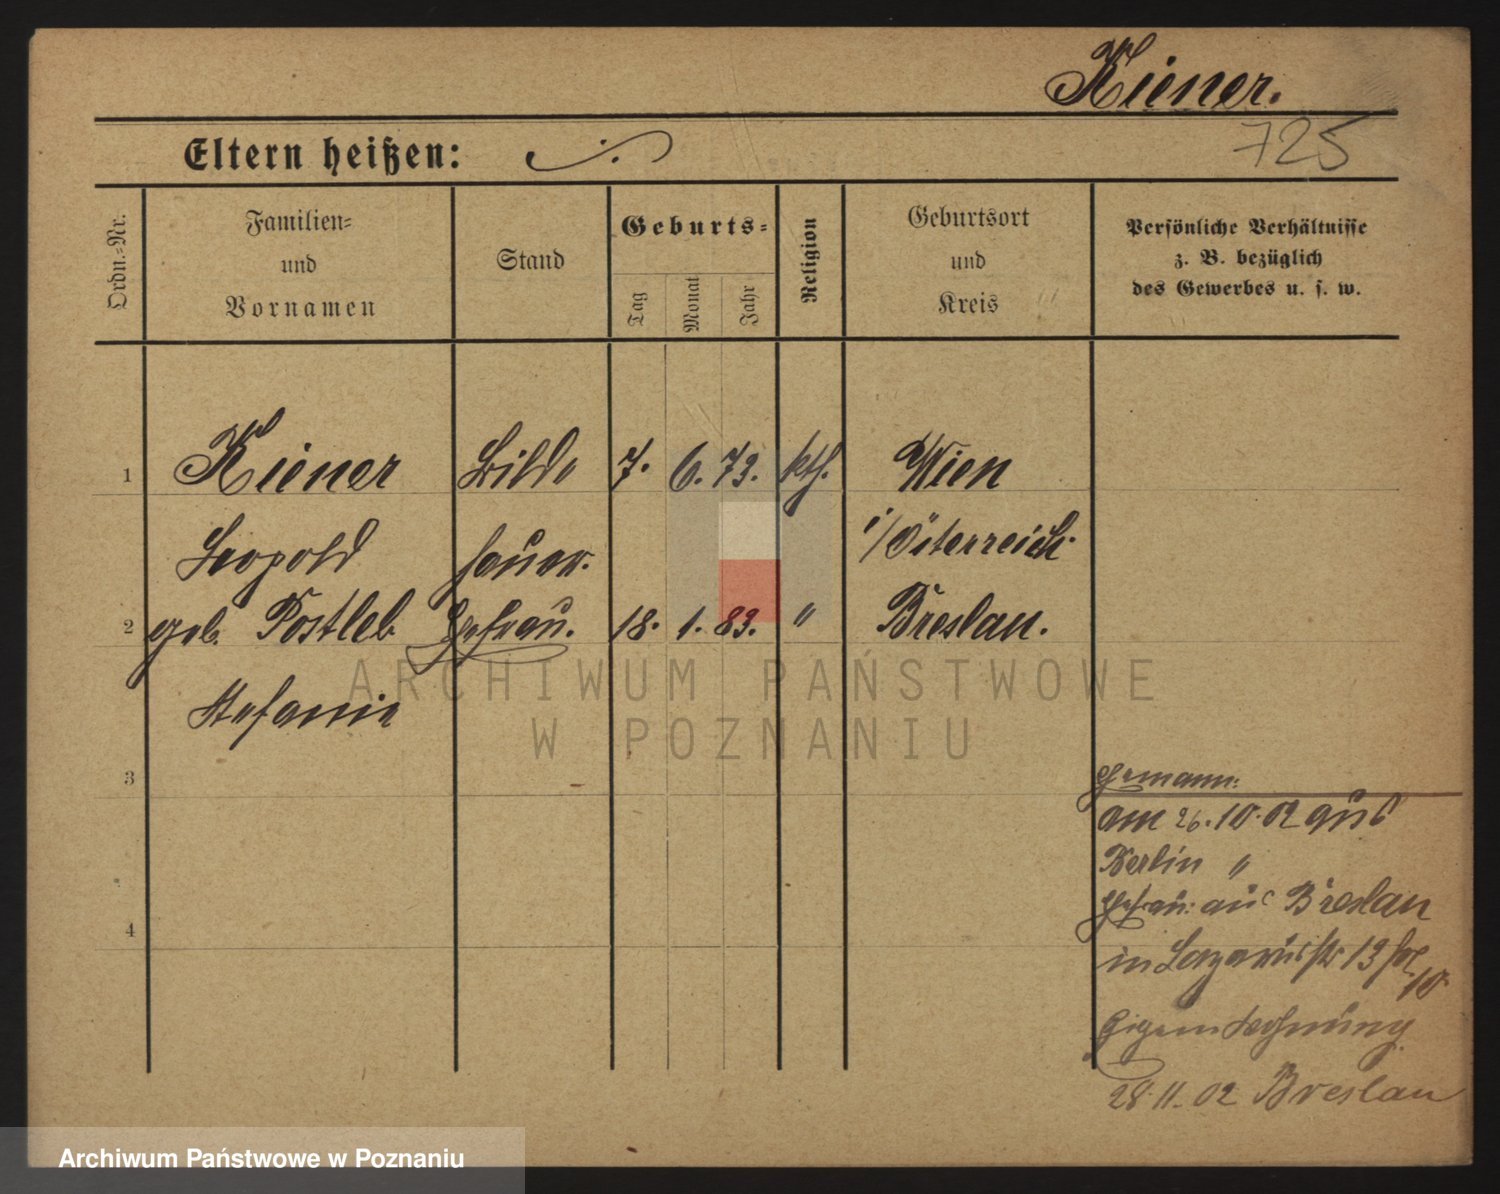 Kiener.
725
Eltern heißen: ./.
Ordn.-Nr.
Familien-
und
Vornamen
Stand
Geburts-
Tag
Monat
Jahr
Religion
Geburtsort
und
Kreis
Persönliche Verhältnisse
z. B. bezüglich
des Gewerbes u. s. w.
1 Kiener Bild- 7. 6. 73. kth. Wien
Leopold hauer. i/Österreich.
2 geb. Postleb Ehefrau. 18. 1. 83. " Breslau.
Stefanie
3
4
Ehemann:
am 26.10.02 aus
Berlin "
Ehefrau: aus Breslau
in Lazarusstr 13
10
Eigene Wohnung
28.11.02 Breslau
ARCHIWUM PAŃSTWOWE
W POZNANIU
Archiwum Państwowe w Poznaniu